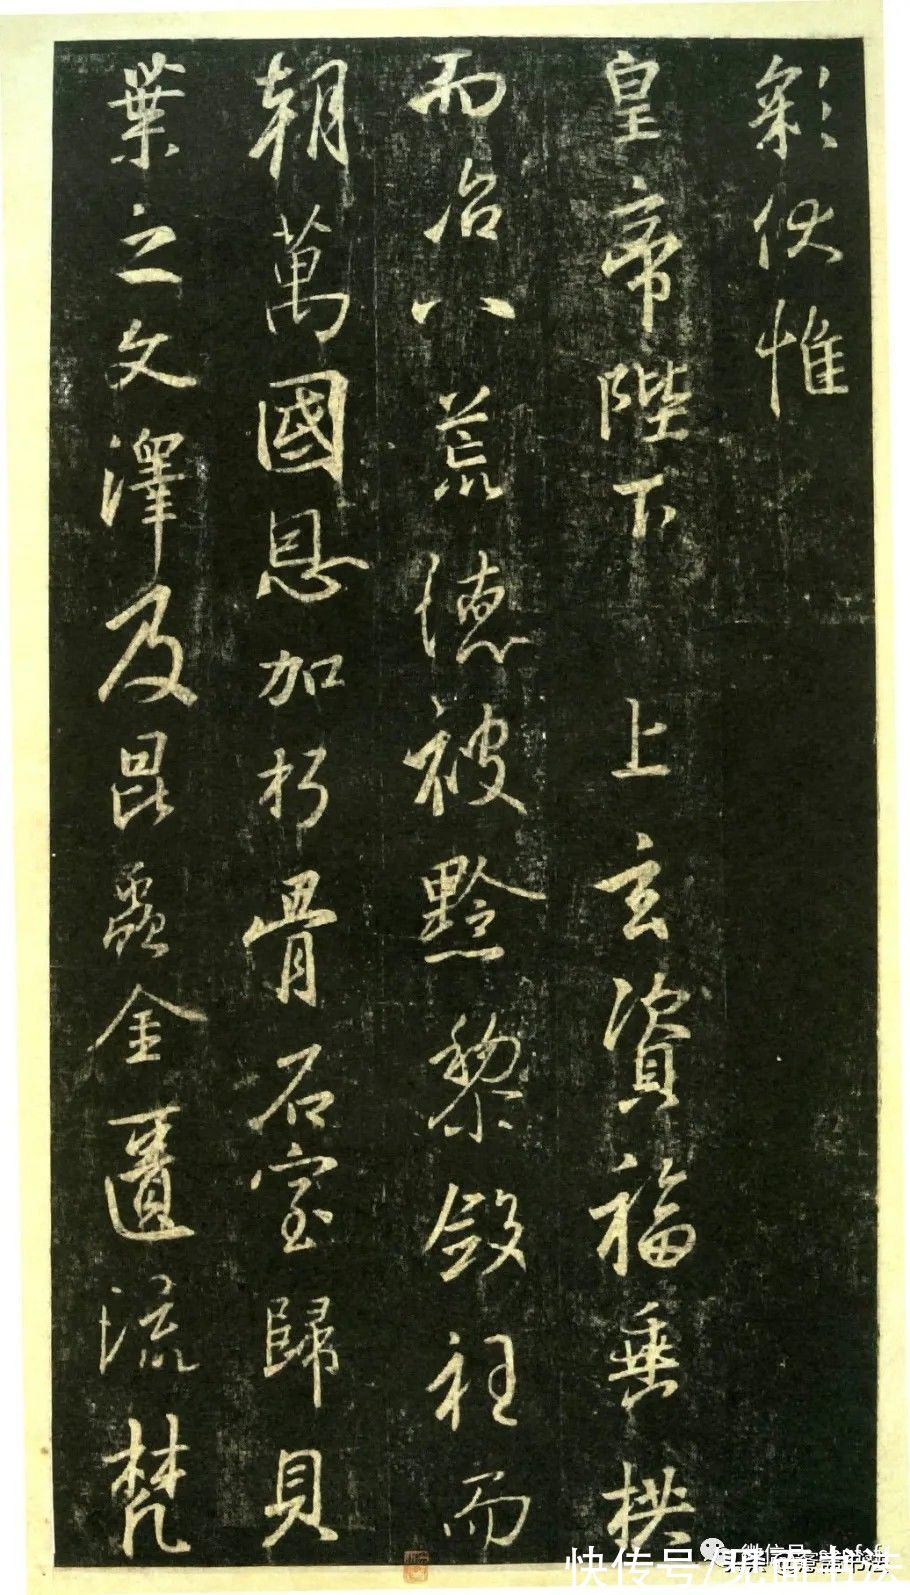 彩伏惟
皇帝陛下 上玄資福垂拱
而治八荒德被黔黎斂衽而
朝萬國恩加朽骨石室歸貝
葉之文澤及昆蟲金匱流梵
微信号
快传号/